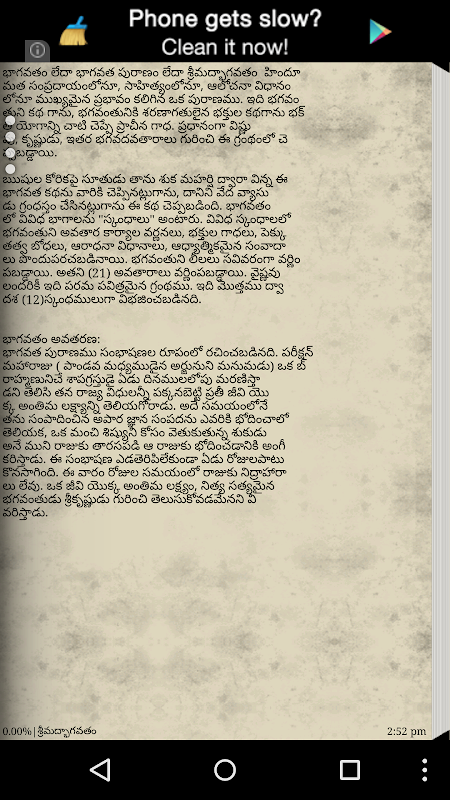 Phone gets slow?
Clean it now!
భాగవతం లేదా భాగవత పురాణం లేదా శ్రీమద్భాగవతం హిందూ
మత సంప్రదాయంలోనూ, సాహిత్యంలోనూ, ఆలోచనా విధానం
లోనూ ముఖ్యమైన ప్రభావం కలిగిన ఒక పురాణము. ఇది భగవం
తుని కథ గాను, భగవంతునికి శరణాగతులైన భక్తుల కథగాను భక్
తి యోగాన్ని చాటి చెప్పే ప్రాచీన గాధ. ప్రధానంగా విష్ణు
కృష్ణుడు, ఇతర భగవదవతారాలు గురించి ఈ గ్రంథంలో చె
ప్పబడ్డాయి.
ఋషుల కోరికపై సూతుడు తాను శుక మహర్షి ద్వారా విన్న ఈ
భాగవత కథను వారికి చెప్పినట్లుగాను, దానిని వేద వ్యాసు
డు గ్రంధస్తం చేసినట్లుగాను ఈ కథ చెప్పబడింది. భాగవతం
లో వివిధ భాగాలను "స్కంధాలు" అంటారు. వివిధ స్కంధాలలో
భగవంతుని అవతార కార్యాల వర్ణనలు, భక్తుల గాధలు, పెక్కు
తత్వ బోధలు, ఆరాధనా విధానాలు, ఆధ్యాత్మికమైన సంవాదా
లు పొందుపరచబడినాయి. భగవంతుని లీలలు సవివరంగా వర్ణిం
పబడ్డాయి. అతని (21) అవతారాలు వర్ణింపబడ్డాయి. వైష్ణవు
లందరికీ ఇది పరమ పవిత్రమైన గ్రంథము. ఇది మొత్తము ద్వా
దశ (12)స్కంధములుగా విభజించబడినది.
భాగవతం అవతరణ:
భాగవత పురాణము సంభాషణల రూపంలో రచించబడినది. పరీక్షన్
మహారాజు ( పాండవ మధ్యముడైన అర్జునుని మనుమడు) ఒక బ్
రాహ్మణునిచే శాపగ్రస్తుడై ఏడు దినములలోపు మరణిస్తా
డని తెలిసి తన రాజ్య విధులన్నీ పక్కనబెట్టి ప్రతీ జీవి యొ
క్క అంతిమ లక్ష్యాన్ని తెలియగోరాడు. అదే సమయంలోనే
తను సంపాదించిన అపార జ్ఞాన సంపదను ఎవరికి భోదించాలో
తెలియక, ఒక మంచి శిష్యుని కోసం వెతుకుతున్న శుకుడు
అనే ముని రాజుకు తారసపడి ఆ రాజుకు భోదించడానికి అంగీ
కరిస్తాడు. ఈ సంభాషణ ఎడతెరిపిలేకుండా ఏడు రోజులపాటు
కొనసాగింది. ఈ వారం రోజుల సమయంలో రాజుకు నిద్రాహారా
లు లేవు. ఒక జీవి యొక్క అంతిమ లక్ష్యం, నిత్య సత్యమైన
భగవంతుడు శ్రీకృష్ణుడు గురించి తెలుసుకోవడమేనని వి
వరిస్తాడు.
0.00%|శ్రీమద్భాగవతం
2:52 pm